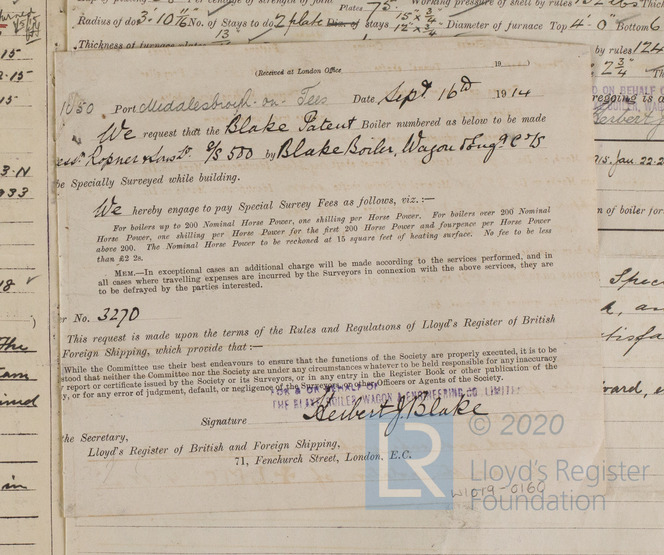 Plates 75. Working pressure of shell by rules
Radius of do 3'10½ No. of Stays to do 2 plate Dia. of stays 15 x ¾ Diameter of furnace Top 4' 0" Bottom 6
12 x ¾
Thickness of furnace plates 13
by rules 124
2 ¾
(Received at London Office 19 )
1050 Port Middlesbrough-on-Tees Date Sept. 16th 1914
We request that the Blake Patent Boiler numbered as below to be made
Ropner &Sons Ld S/S 500 by Blake Boiler, Wagon & Eng'g Co Ld
be Specially Surveyed while building.
We hereby engage to pay Special Survey Fees as follows, viz.:—
For boilers up to 200 Nominal Horse Power, one shilling per Horse Power. For boilers over 200 Nominal
Horse Power, one shilling per Horse Power for the first 200 Horse Power and fourpence per Horse Power
above 200. The Nominal Horse Power to be reckoned at 15 square feet of heating surface. No fee to be less
than £2 2s.
MEM.—In exceptional cases an additional charge will be made according to the services performed, and in
all cases where travelling expenses are incurred by the Surveyors in connexion with the above services, they are
to be defrayed by the parties interested.
er No. 3270
This request is made upon the terms of the Rules and Regulations of Lloyd's Register of British
Foreign Shipping, which provide that:—
While the Committee use their best endeavours to ensure that the functions of the Society are properly executed, it is to be
stood that neither the Committee nor the Society are under any circumstances whatever to be held responsible for any inaccuracy
report or certificate issued by the Society or its Surveyors, or in any entry in the Register Book or other publication of the
y, or for any error of judgment, default, or negligence of the Surveyors or other Officers or Agents of the Society.
FOR & ON BEHALF OF
THE BLAKE BOILER WAGON & ENGINEERING CO. LIMITED
Signature Herbert J. Blake
the Secretary,
Lloyd's Register of British and Foreign Shipping,
71, Fenchurch Street, London, E.C.
W1019-0160
LR © 2020
Lloyd's Register
Foundation
ON BEHALF O
going is a
Herbert J
915. Jan 22.2
n of boiler for
Spec